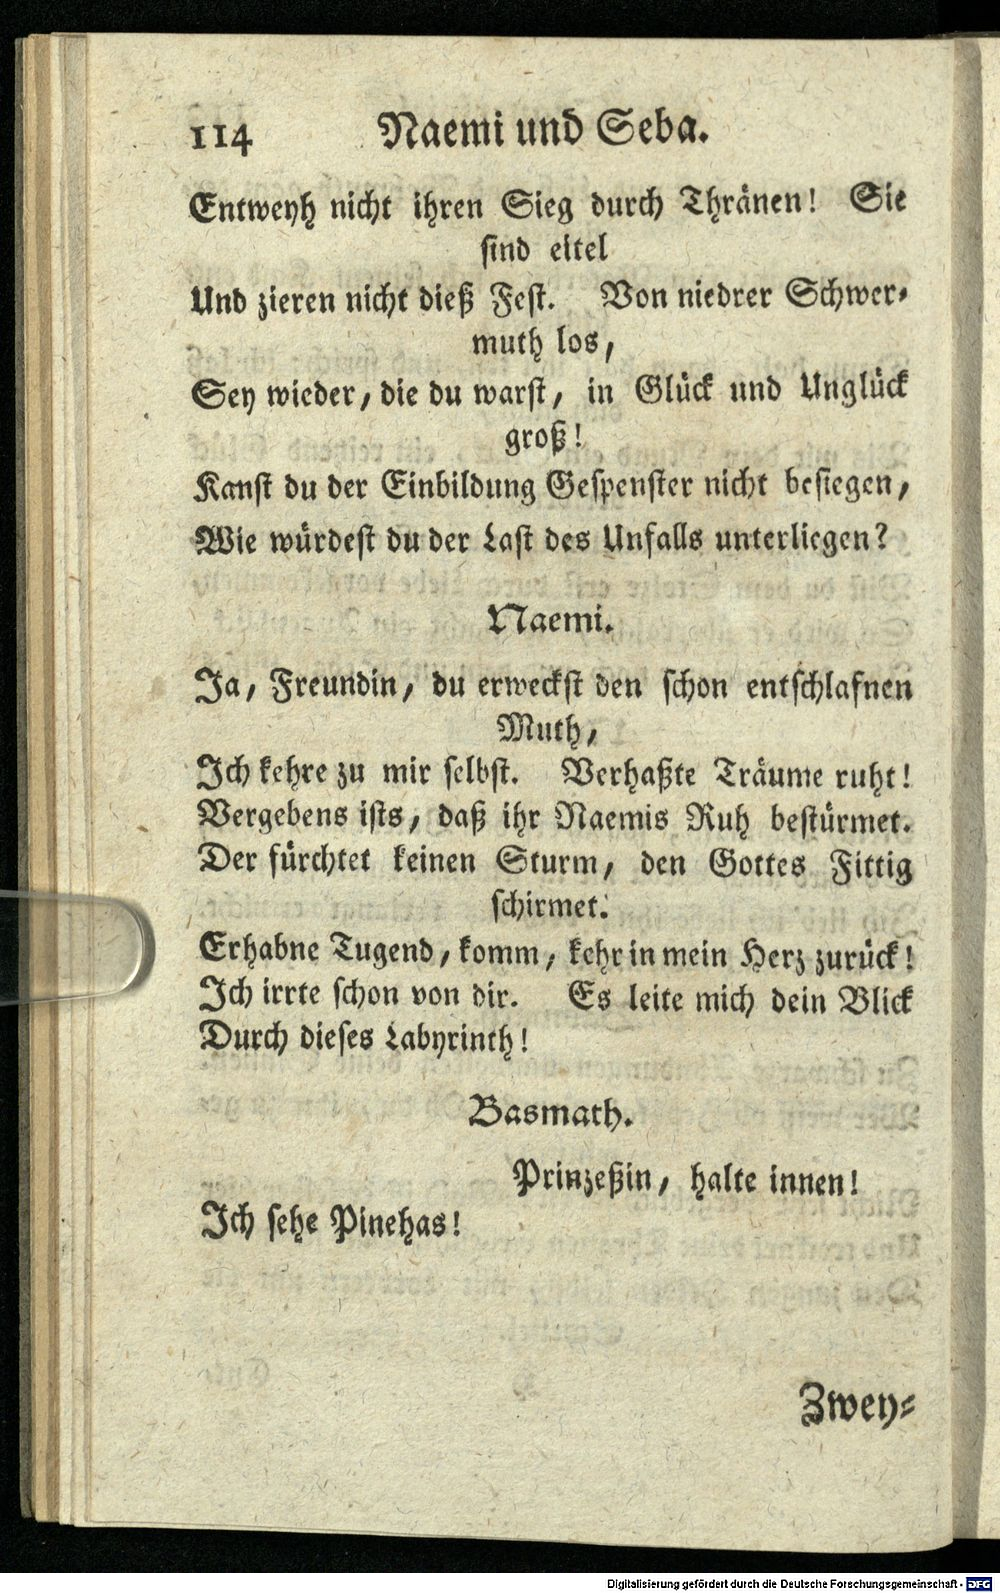 114 Naemi und Seba.
Entweyh nicht ihren Sieg durch Thränen! Sie
sind eitel
Und zieren nicht dieß Fest. Von niedrer Schwer-
muth los,
Sey wieder, die du warst, in Glück und Unglück
groß!
Kanst du der Einbildung Gespenster nicht besiegen,
Wie würdest du der Last des Unfalls unterliegen?
Naemi.
Ja, Freundin, du erweckst den schon entschlafnen
Muth,
Ich kehre zu mir selbst. Verhaßte Träume ruht!
Vergebens ists, daß ihr Naemis Ruh bestürmet.
Der fürchtet keinen Sturm, den Gottes Fittig
schirmet.
Erhabne Tugend, komm, kehr in mein Herz zurück!
Ich irrte schon von dir. Es leite mich dein Blick
Durch dieses Labyrinth!
Basmath.
Prinzeßin, halte innen!
Ich sehe Pinehas!
Zwey-
Digitalisierung gefördert durch die Deutsche Forschungsgemeinschaft - DFG